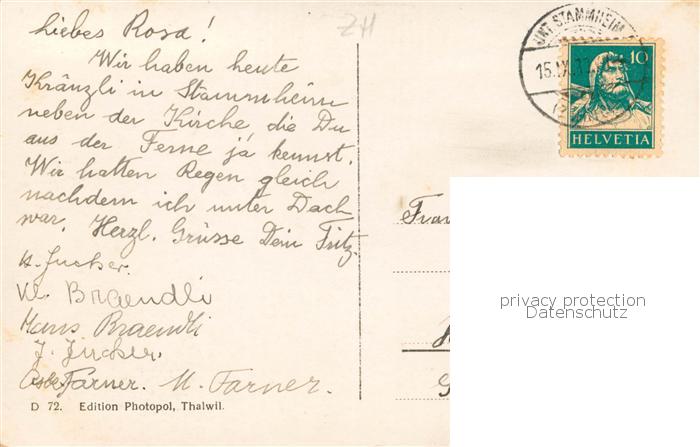 Liebes Rosa!
ZH
Wir haben heute
Kränzli in Stammheim
neben der Kirche die Du
aus der Ferne ja kennst.
Wir hatten Regen gleich
nachdem ich unter Dach
war. Herzl. Grüsse Dein Fritz.
Braendli
Hans Braendli
Farner. M. Farner.
D 72. Edition Photopol, Thalwil.
UNT. STAMMHEIM
15.IX.
10
HELVETIA
Frau
privacy protection
Datenschutz